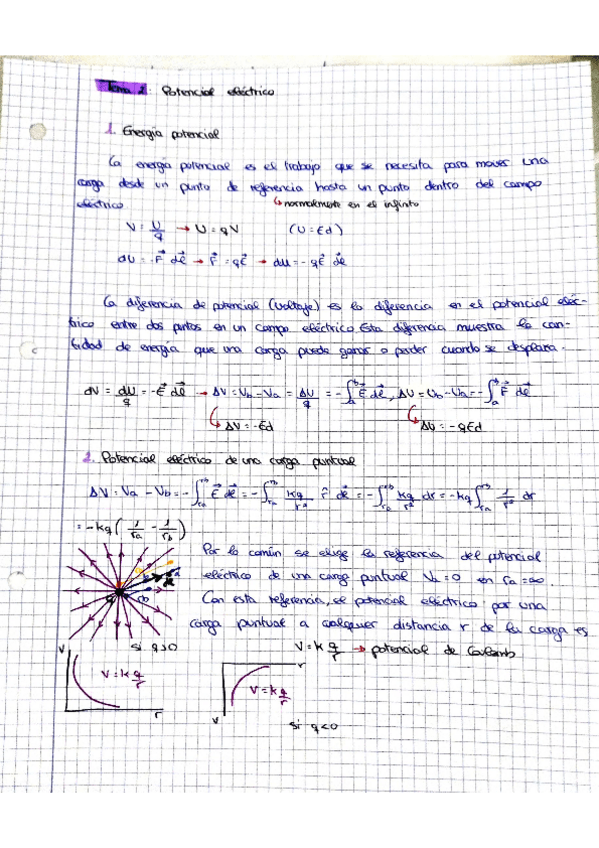 Tema 2: Potencial eléctrico
1. Energía potencial
La energía potencial es el trabajo que se necesita para mover una
carga desde un punto de referencia hasta un punto dentro del campo
eléctrico. ↳ normalmente en el infinito
V = U/q → U = qV (U = Ed)
dU = -F⃗ dl⃗ → F⃗ = qE⃗ → dU = -qE⃗ dl⃗
La diferencia de potencial (voltaje) es la diferencia en el potencial eléc-
trico entre dos puntos en un campo eléctrico. Esta diferencia muestra la can-
tidad de energía que una carga puede ganar o perder cuando se desplaza.
dV = dU/q = -E⃗ dl⃗ → ΔV = Vb - Va = ΔU/q = -∫_a^b E⃗ dl⃗, ΔU = Ub - Ua = -∫_a^b F⃗ dl⃗
↳ ΔV = -Ed ↳ ΔU = -qEd
2. Potencial eléctrico de una carga puntual
ΔV = Va - Vb = -∫_ra^rb E⃗ dl⃗ = -∫_ra^rb kq/r² r̂ dl⃗ = -∫_ra^rb kq/r² dr = -kq ∫_ra^rb 1/r² dr
= -kq (1/ra - 1/rb)
Por lo común se elige la referencia del potencial
eléctrico de una carga puntual Va = 0 en ra = ∞.
Con esta referencia, el potencial eléctrico por una
carga puntual a cualquier distancia r de la carga es
si q>0 V = k q/r → potencial de Coulomb
V V = k q/r r
r V = k q/r V
si q<0